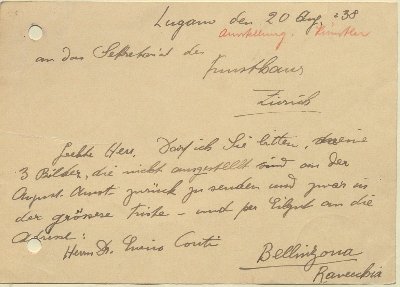 Lugano den 20 Aug. 38
Ausstellung. Künstler
an das Sekretariat des
Kunsthaus
Zürich
Geehte Herr. Darf ich Sie bitten, meine
3 Bilder, die nicht ausgestellt sind an der
August-Ausst. zurück zu senden und zwar in
der grössere Kiste - und per Eilgut an die
Adresse:
Herrn Dr. Conti
Bellinzona
Ravecchia